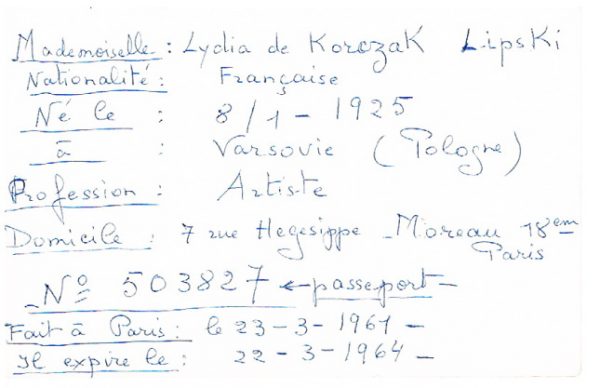 Mademoiselle : Lydia de Korczak Lipski
Nationalité : Française
Né le : 8/1 - 1925
à : Varsovie (Pologne)
Profession : Artiste
Domicile : 7 rue Hegesippe - Moreau 18em
Paris
- Nº 503827 ← passeport -
Fait à Paris : le 23 - 3 - 1961 -
Il expire le : 22 - 3 - 1964 -